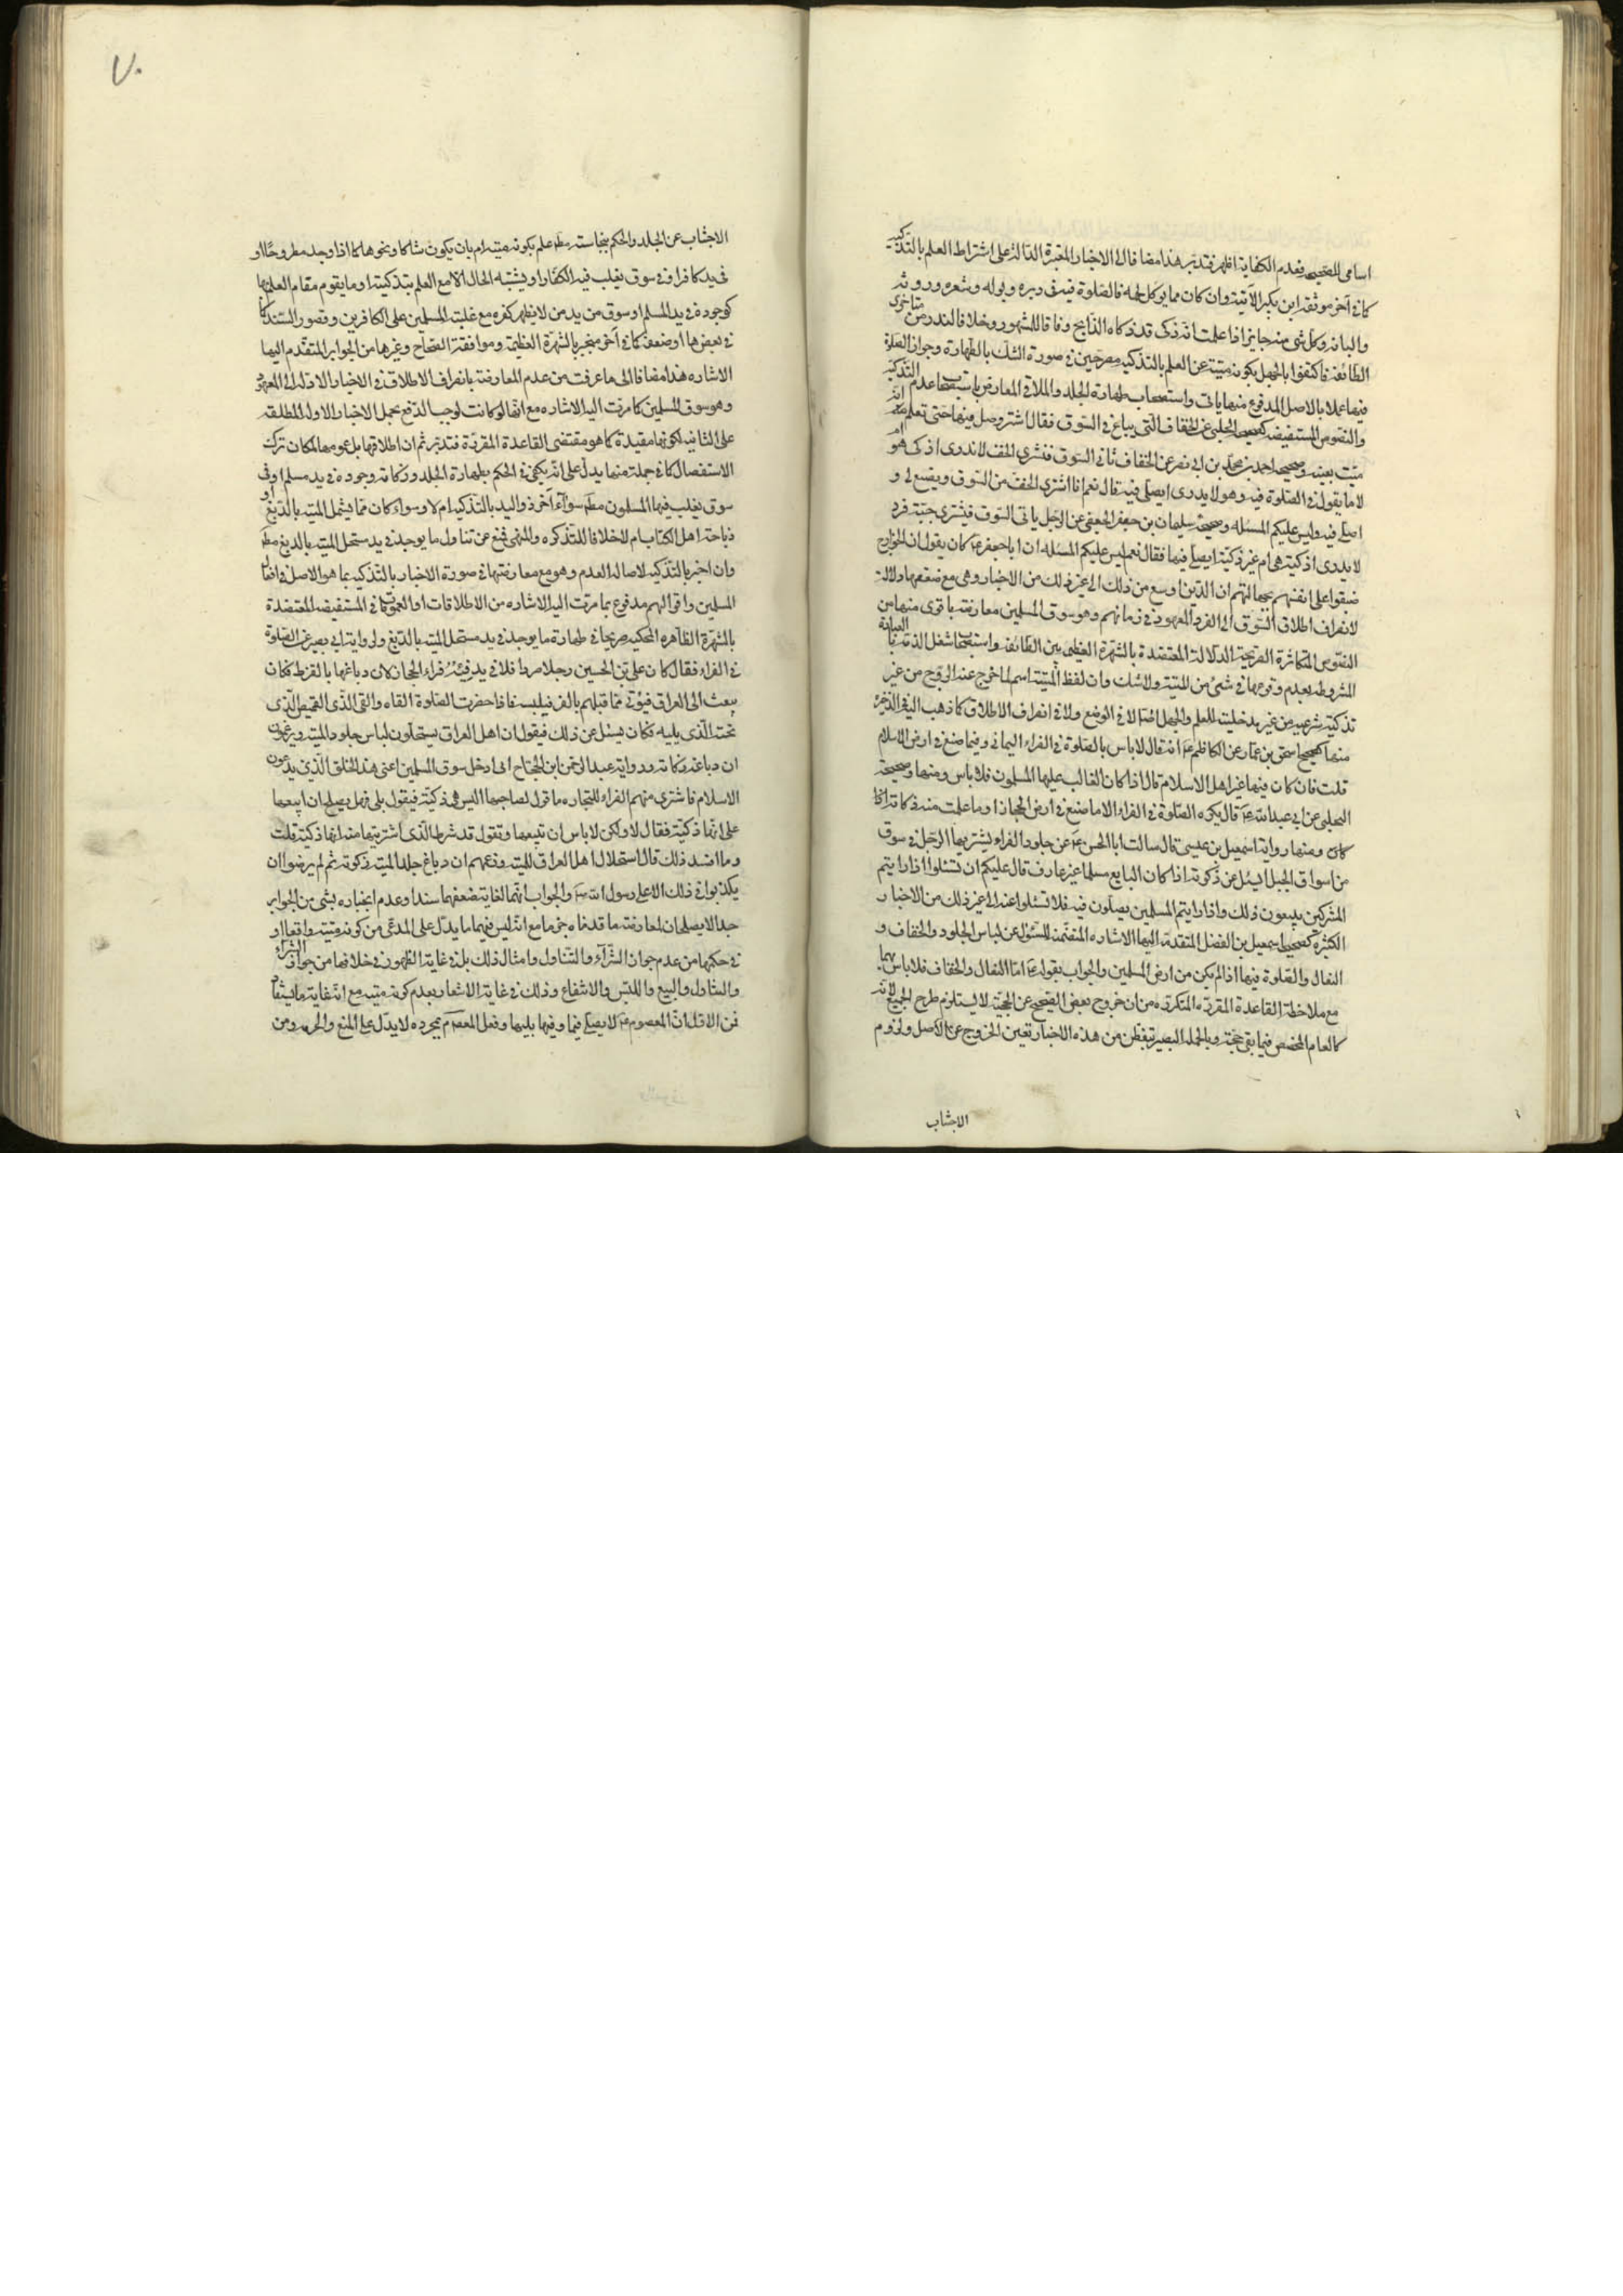 اسامى للصحيحه فعدم الكفاية اظهر فتدبر هذا مضافا الى الاخبار المعتبرة الدالة على اشتراط العلم بالتذكية
كما فى آخر موثقة ابن بكير الآتية وان كان مما يوكل لحمه فالصلوة فيه فى وبره وبوله وشعره وروثه
والبانه وكل شى منه جايز اذا علمت انه ذكى قد ذكاه الذابح وفاقا للمشهور وخلافا لندر من متاخرى
الطائفة فاكتفوا بالجهل بكونه ميتة عن العلم بالتذكيه مصرحين فى صورة الشك بالطهارة وجواز الصلوة
فيها عملا بالاصل المدفوع منها ياتى واستصحاب طهارة الجلد والملاقى المعارض باستصحاب عدم التذكيه
والنصوص المستفيضه كصحيحه الحلبى عن الخفاف التى يباع فى السوق فقال اشتر وصل فيها حتى تعلم انه
ميت بعينه وصحيحه احمد بن محمد بن ابى نصر عن الخفاف ناتى السوق فنشترى الخف لا ندرى اذكى هو ام
لا ما يقول فى الصلوة فيه وهو لا يدرى ايصلى فيه قال نعم انا اشترى الخف من السوق ويصنع لى و
اصلى فيه وليس عليكم المسئله وصحيحه سليمان بن جعفر الجعفى عن الرجل ياتى السوق فيشترى جبة فرد
لا يدرى اذكية هى ام غير ذكية ايصلى فيها فقال نعم ليس عليكم المسئله ان ابا جعفر ع كان يقول ان الخوارج
ضيقوا على انفسهم بجهالتهم ان الدين اوسع من ذلك الى غير ذلك من الاخبار وهى مع ضعفها دلالة
لانصراف اطلاق السوق الى الفرد المعهود فى زمانهم وهو سوق المسلمين معارضة باقوى منها من
النصوص المتكاثرة الصريحة الدلالة المعتضدة بالشهرة العظيمى بين الطائفه واستصحاب شغل الذمة بالعبادة
المشروطه بعدم وقوعها فى شئ من الميتة ولا شك وان لفظ الميتة اسم لما خرج عنه الروح من غير
تذكية شرعيه من غير مدخليته للعلم والجهل اصلا لا فى الوضع ولا فى انصراف الاطلاق كما ذهب اليه فى الذخيره
منها كصحيحه اسحق بن عمار عن الكاظم ع انه قال لا باس بالصلوة فى الفراء اليمانى وفيما صنع فى ارض الاسلام
قلت فان كان فيها غير اهل الاسلام قال اذا كان الغالب عليها المسلمون فلا باس ومنها وصحيحة
الحلبى عن ابى عبد الله ع قال يكره الصلوة فى الفراء الا ما صنع فى ارض الحجاز او ما علمت منه ذكاته انها
كان ومنها رواية اسمعيل بن عيسى قال سالت ابا الحسن ع عن جلود الفراء يشتريها الرجل فى سوق
من اسواق الجبل ايسئل عن ذكوته اذا كان البايع مسلما غير عارف قال عليكم ان تسئلوا اذا رايتم
المشركين يبيعون ذلك واذا رايتم المسلمين يصلون فيه فلا تسئلوا عنه الى غير ذلك من الاخبار
الكثيرة كصحيحه اسمعيل بن الفضل المتقدمه اليها الاشاره المتضمنه للسئول عن لباس الجلود والخفاف و
النعال والصلوة فيها اذا لم يكن من ارض المسلمين والجواب بقوله ع اما النعال والخفاف فلا باس بهما
مع ملاحظة القاعدة المقرره المتكرره من ان خروج بعض الصحيح عن الحجية لا يستلزم طرح الجميع لانه
كالعام المخصص فيما بقى حجة وبالجمله البصير يتفطن من هذه الاخبار تعين الخروج عن الاصل ولزوم
الاجتناب
٧٠
الاجتناب عن الجلد والحكم بنجاسته مطم علم بكونه ميته ام بان يكون شاكا ونحوها كما اذا وجد مطروحا او
فى يد كافر او فى سوق يغلب فيه الكفار او يشتبه الحال الا مع العلم بتذكيته او ما يقوم مقام العلم بها
كوجوده فى يد المسلم او سوق من يد من لا يظهر كفره مع غلبة المسلمين على الكافرين وقصور السند كما
فى بعضها او ضعفه كما فى آخر منجبر بالشهرة العظيمة وموافقة الصحاح وغيرها من الجوابر المتقدم اليها
الاشاره هذا مضافا الى ما عرفت من عدم المعارضة بانصراف الاطلاق فى الاخبار الاولة الى المعهود
وهو سوق المسلمين كما مرت اليه الاشاره مع انها لو كانت لوجب الدفع بحمل الاخبار الاوله المطلقه
على الثانيه لكونها مقيدة كما هو مقتضى القاعدة المقررة فتدبر ثم ان اطلاقها بل عمومها لمكان ترك
الاستفصال كما فى جملة منها يدل على انه يكفى فى الحكم بطهارة الجلد وذكاته وجوده فى يد مسلم او فى
سوق يغلب فيها المسلمون مطم سوآء اخبر ذو اليد بالتذكيه ام لا وسواء كان مما يشمل الميته بالدبغ او
ذباحة اهل الكتاب ام لا خلافا للتذكره والمنتهى فمنع عن تناول ما يوجد فى يد مستحل الميته بالدبغ مطم
وان اخبر بالتذكيه لاصالة العدم وهو مع معارضتها فى صورة الاخبار بالتذكيه بما هو الاصل فى افعال
المسلمين واقوالهم مدفوع بما مرت اليه الاشاره من الاطلاقات او العموم كما فى المستفيضه المعتضدة
بالشهرة الظاهره المحكيه صريحا فى طهارة ما يوجد فى يد مستحل الميته بالدبغ ولرواية ابى بصير عن الصلوة
فى الفراء فقال كان على بن الحسين رجلا صردا فلا يدفئه فراء الحجاز لان دباغها بالقرظ فكان
يبعث الى العراق فيؤتى مما قبلهم بالفرو فيلبسه فاذا حضرت الصلوة القاه والقى القميص الذى
تحته الذى يليه فكان يسئل عن ذلك فيقول ان اهل العراق يستحلون لباس جلود الميته ويزعمون
ان دباغه ذكاته ورواية عبد الرحمن ابن الحجاج انى ادخل سوق المسلمين اعنى هذا الخلق الذين يدعون
الاسلام فاشترى منهم الفراء للتجاره فاقول لصاحبها اليس هى ذكية فيقول بلى فهل يصلح ان ابيعها
على انها ذكية فقال لا ولكن لا باس ان تبيعها وتقول قد شرط الذى اشتريتها منه انها ذكية قلت
وما افسد ذلك قال استحلال اهل العراق للميته وزعمهم ان دباغ جلد الميته ذكوته ثم لم يرضوا ان
يكذبوا فى ذلك الا على رسول الله ص والجواب انهما لغاية ضعفهما سندا وعدم انجباره بشى من الجوابر
جدا لا يصلحان لمعارضة ما قدمناه جزما مع انه ليس فيهما ما يدل على المدعى من كونه ميتة واقعا او
فى حكمها من عدم جواز الشرآء والتناول وامثال ذلك بل فى غاية الظهور فى خلافها من جواز الشراء
والتناول والبيع واللبس والانتفاع وذلك فى غاية الاشعار بعدم كونه ميته مع ان غاية ما يستفاد
من الاول ان المعصوم ع لا يصلى فيها وفيما يليها وفعل المعصوم بمجرده لا يدل على المنع والحرمه ومن